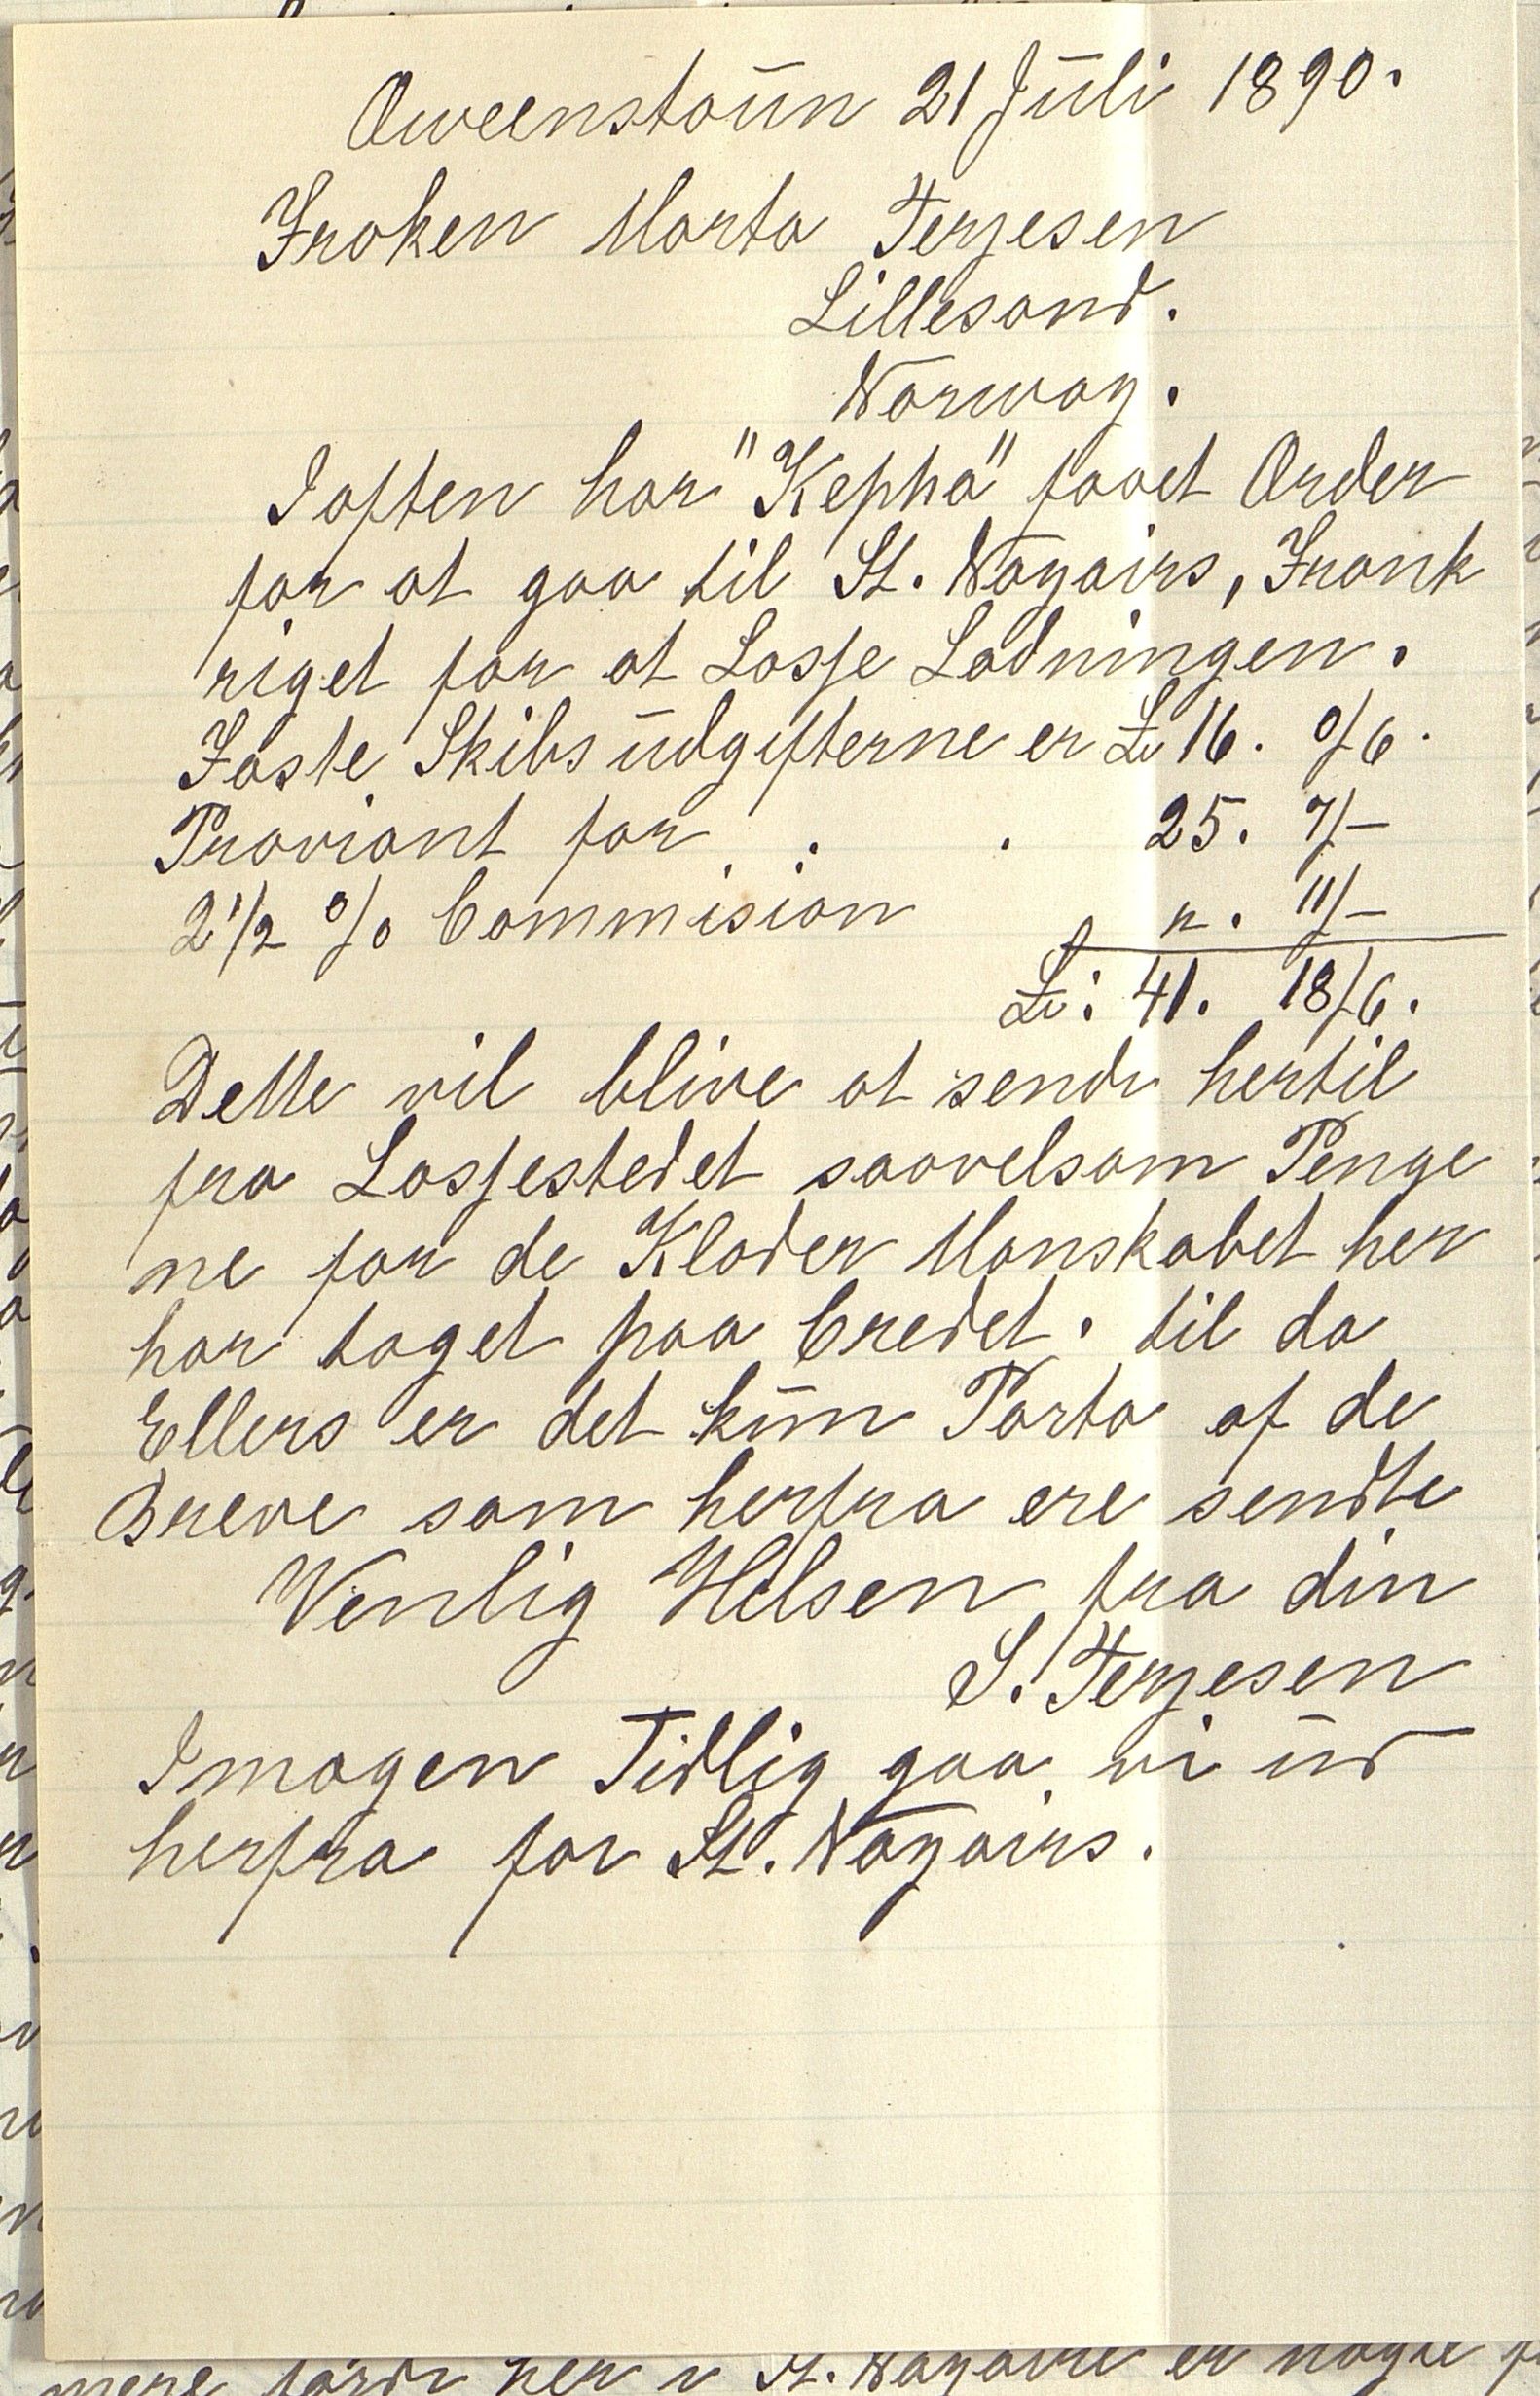 Qweenstoun 21 Juli 1890.
Froken Marta Terjesen
Lillesand.
Norway.
Iaften har "Kepha" faaet Order
for at gaa til St. Nazairs, Frank
riget for at Losse Ladningen.
Faste Skibsudgifterne er £ 16. 0/6.
Proviant for . . 25. 7/-
2 1/2 % Commision " . 11/-
£: 41. 18/6.
Dette vil blive at sende hertil
fra Lossestedet saavelsom Penge
ne for de Klæder Manskabet her
har taget paa Credet. til da
Ellers er det kun Porto af de
Breve som herfra ere sendte
Venlig Hilsen fra din
S. Terjesen
Imogen Tidlig gaa vi ud
herfra for St. Nazairs.
mere førde her i St. Nazaire er nogle